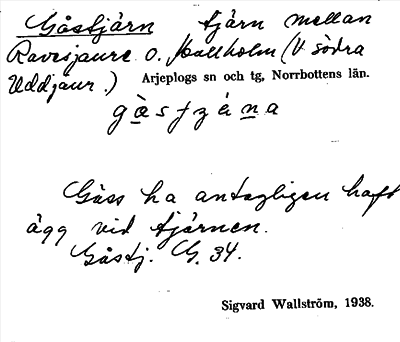 Gåstjärn tjärn mellan
Ravesjaure o. Stallholm (V. södra
Uddjaur.) Arjeplogs sn och tg, Norrbottens län.
gåstzæna
Gäss ha antagligen haft
ägg vid tjärnen.
Gåstj. G. 34.
Sigvard Wallström, 1938.